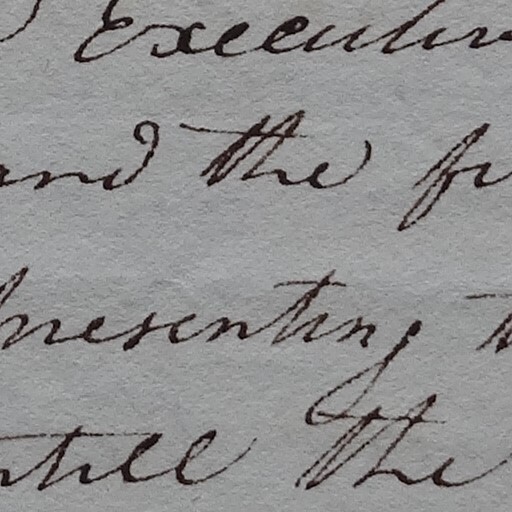 Executive
and the
presenting
untill the